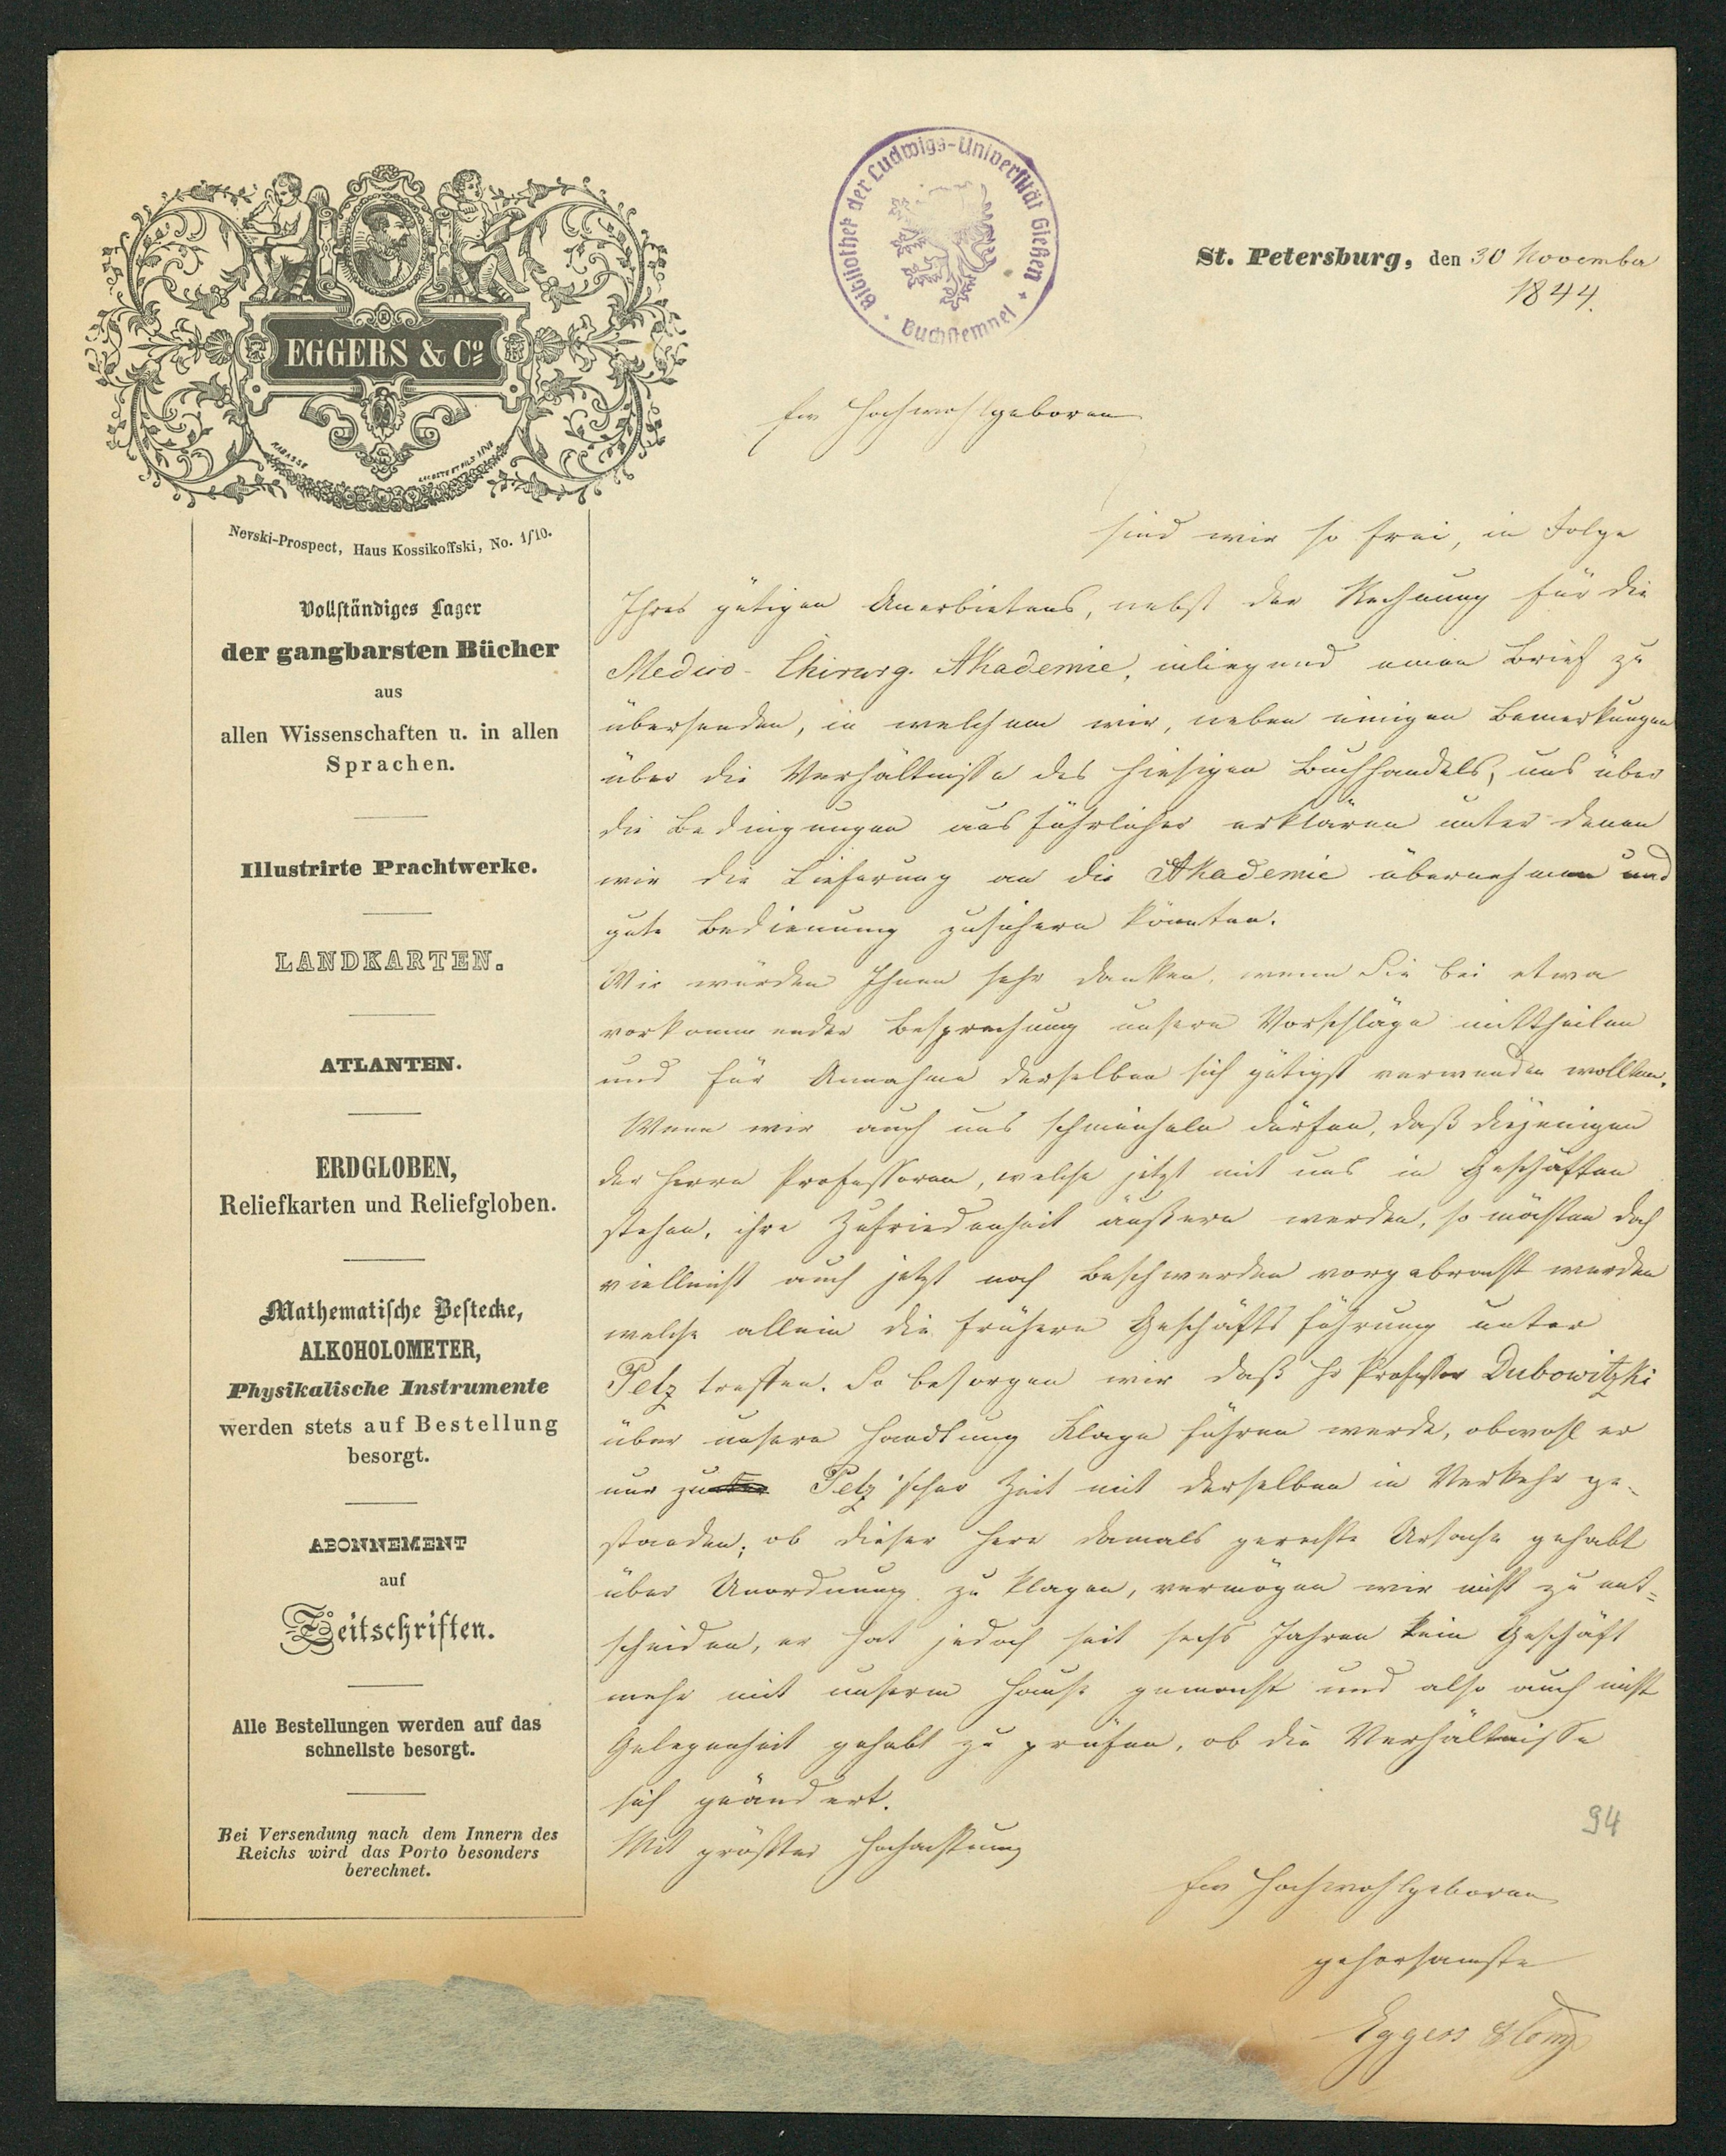 Bibliothek der Ludwigs-Universität Gießen
Buchstempel
St. Petersburg, den 30 November
1844.
EGGERS & Co
Nevski-Prospect, Haus Kossikoffski, No. 1/10.
Vollständiges Lager
der gangbarsten Bücher
aus
allen Wissenschaften u. in allen
Sprachen.
Illustrirte Prachtwerke.
LANDKARTEN.
ATLANTEN.
ERDGLOBEN,
Reliefkarten und Reliefgloben.
Mathematische Bestecke,
ALKOHOLOMETER,
Physikalische Instrumente
werden stets auf Bestellung
besorgt.
ABONNEMENT
auf
Zeitschriften.
Alle Bestellungen werden auf das
schnellste besorgt.
Bei Versendung nach dem Innern des
Reichs wird das Porto besonders
berechnet.
Ew Hochwohlgeboren
sind wir so frei, in Folge
Ihres gütigen Anerbietens, nebst der Rechnung für die
Medico-Chirurg. Akademie, inliegend einen Brief zu
übersenden, in welchem wir, neben einigen Bemerkungen
über die Verhältnisse des hiesigen Buchhandels, uns über
die Bedingungen ausführlicher erklären unter denen
wir die Lieferung an die Akademie übernehmen und
gute Bedienung zusichern könnten.
Wir würden Ihnen sehr danken, wenn Sie bei etwa
vorkommender Besprechung unsere Vorschläge mittheilen
und für Annahme derselben sich gütigst verwenden wollten.
Wenn wir auch uns schmeicheln dürfen, daß diejenigen
der Herrn Professoren, welche jetzt mit uns in Geschäften
stehen, ihre Zufriedenheit äußern werden, so möchten doch
vielleicht auch jetzt noch Beschwerden vorgebracht werden
welche allein die frühere Geschäftsführung unter
Pelz treffen. So besorgen wir daß Hr Professor Dubowitzki
über unsere Handlung Klage führen werde, obwohl er
nur zu Pelz'scher Zeit mit derselben in Verkehr ge-
standen; ob dieser Herr damals gerechte Ursache gehabt
über Unordnung zu klagen, vermögen wir nicht zu ent-
scheiden, er hat jedoch seit sechs Jahren kein Geschäft
mehr mit unserm Hause gemacht und also auch nicht
Gelegenheit gehabt zu prüfen, ob die Verhältnisse
sich geändert.
Mit größter Hochachtung
Ew Hochwohlgeboren
gehorsamste
Eggers & Comp
94